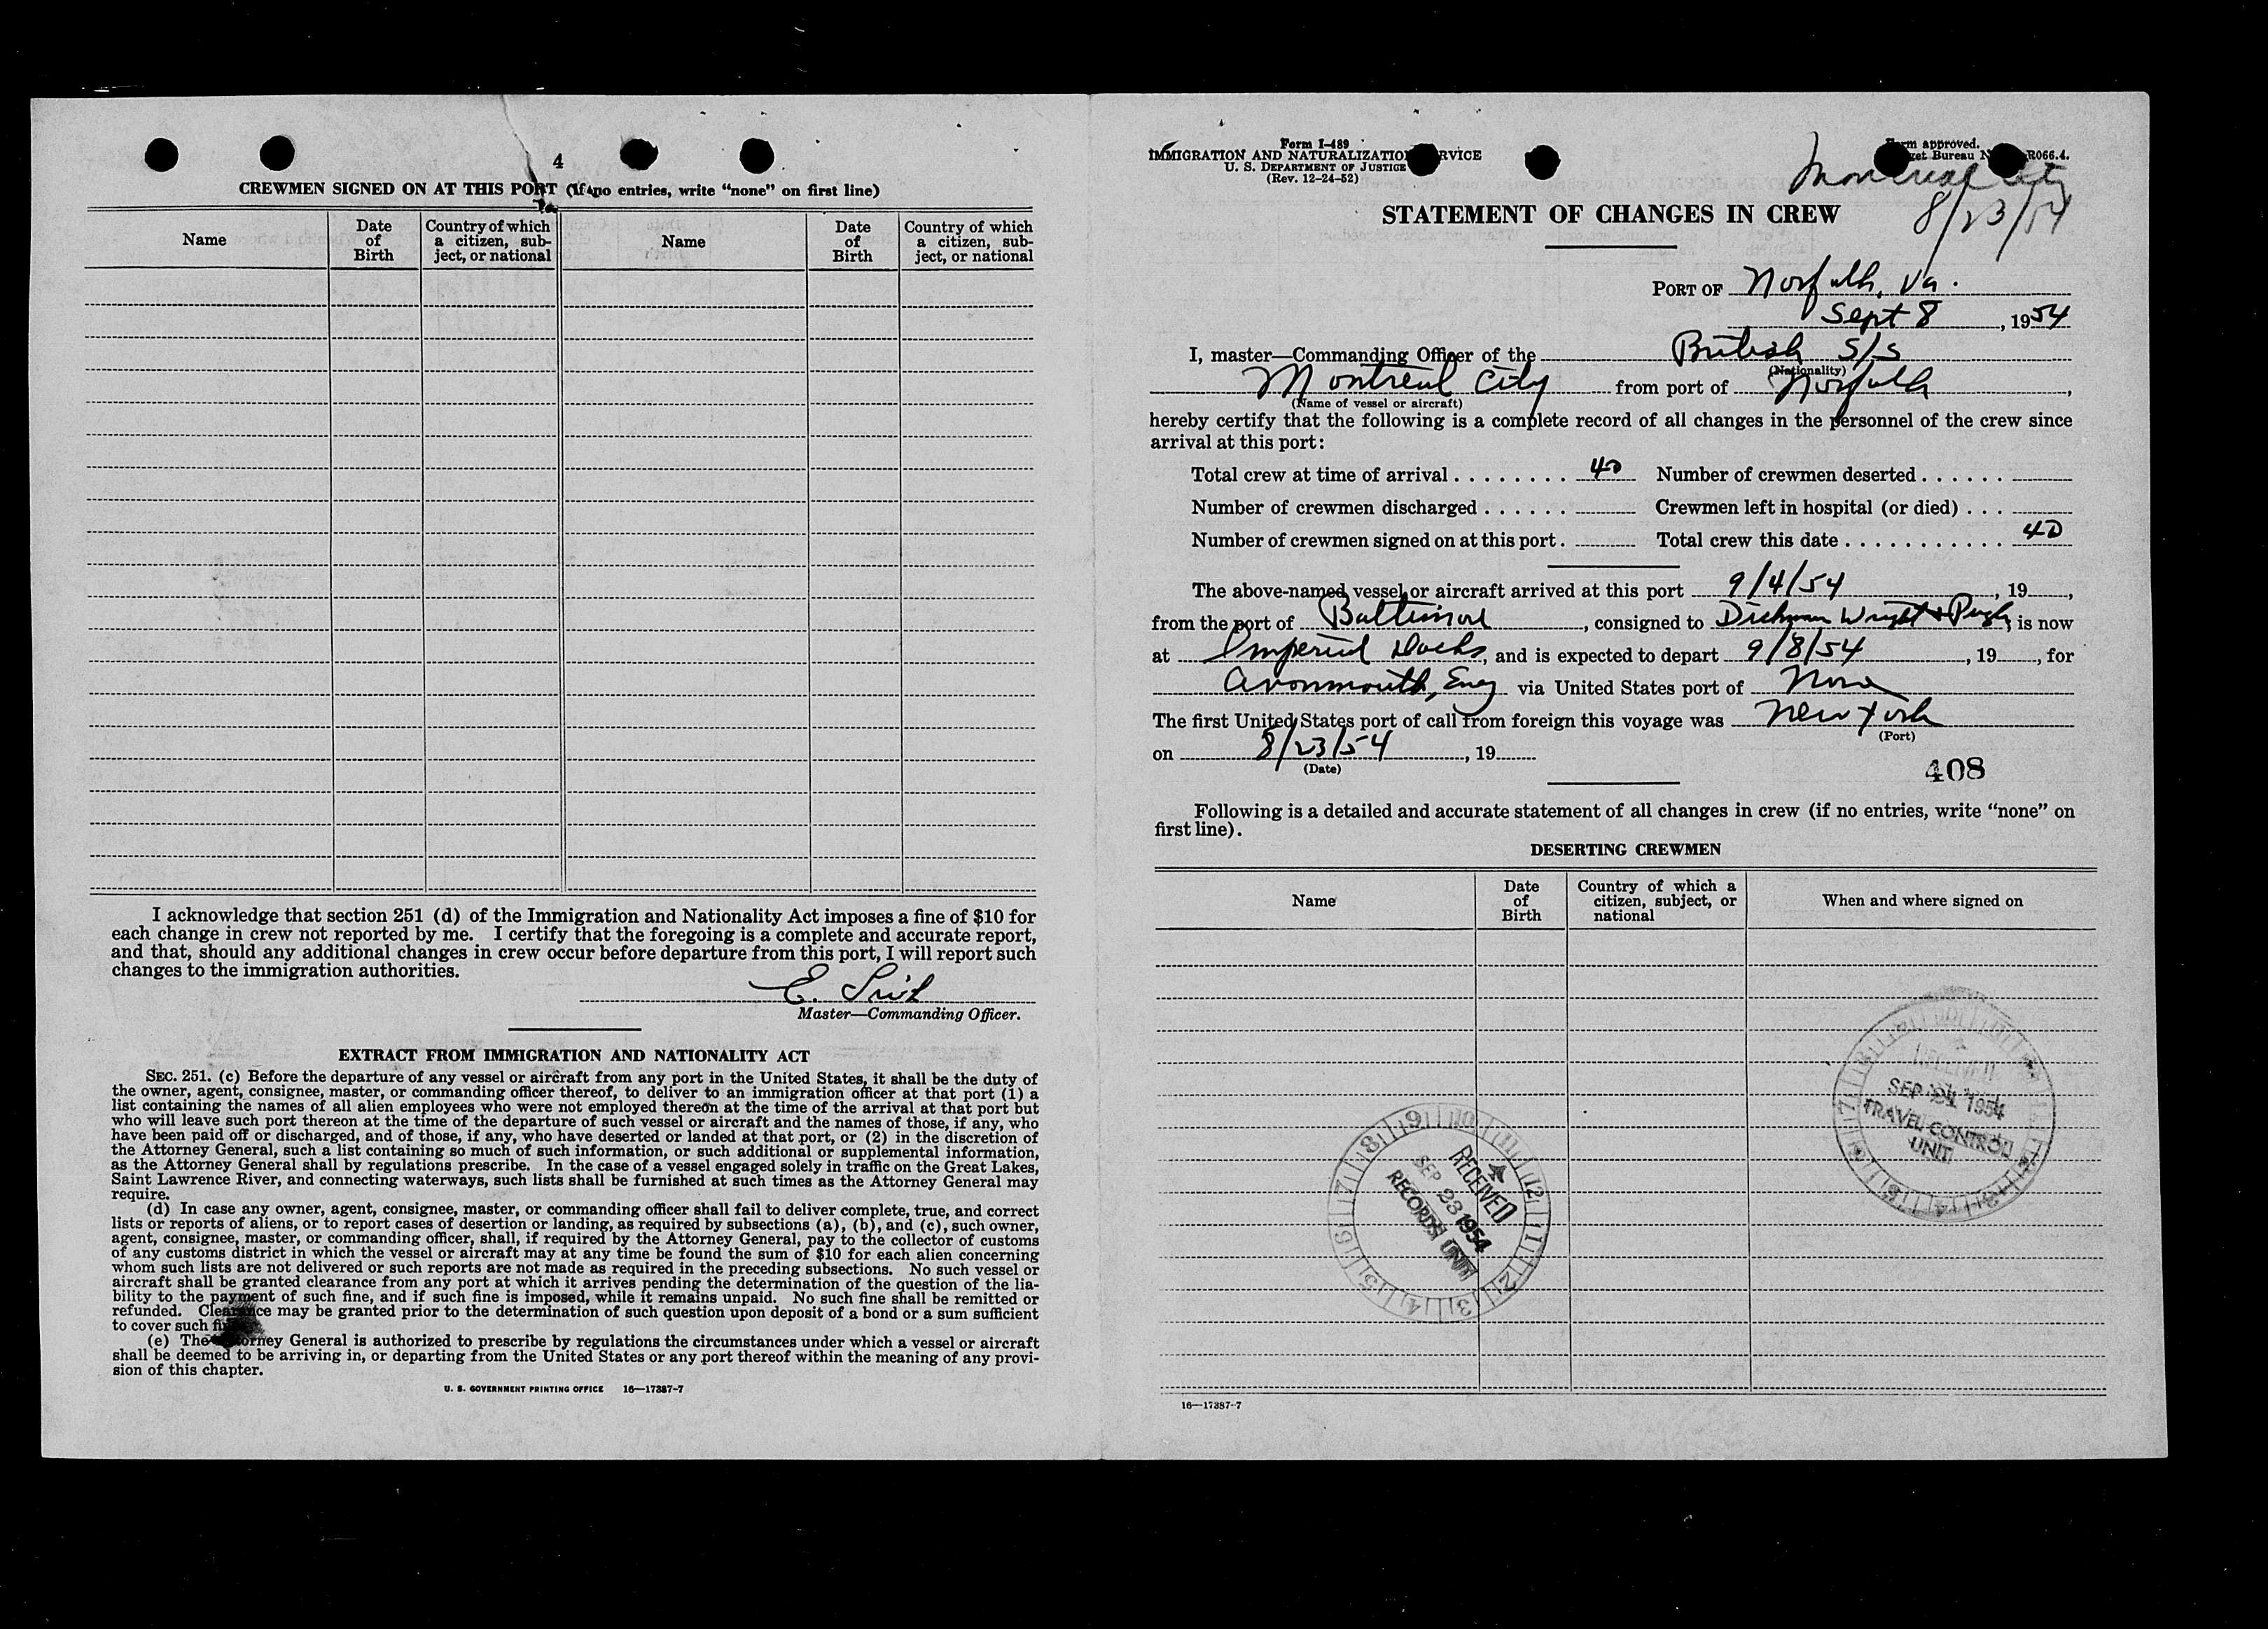 4
CREWMEN SIGNED ON AT THIS PORT (If no entries, write “none” on first line)
Name
Date of Birth
Country of which a citizen, subject, or national
Name
Date of Birth
Country of which a citizen, subject, or national
I acknowledge that section 251 (d) of the Immigration and Nationality Act imposes a fine of $10 for
each change in crew not reported by me. I certify that the foregoing is a complete and accurate report,
and that, should any additional changes in crew occur before departure from this port, I will report such
changes to the immigration authorities.
E.
Master—Commanding Officer.
EXTRACT FROM IMMIGRATION AND NATIONALITY ACT
SEC. 251. (c) Before the departure of any vessel or aircraft from any port in the United States, it shall be the duty of
the owner, agent, consignee, master, or commanding officer thereof, to deliver to an immigration officer at that port (1) a
list containing the names of all alien employees who were not employed thereon at the time of the arrival at that port but
who will leave such port thereon at the time of the departure of such vessel or aircraft and the names of those, if any, who
have been paid off or discharged, and of those, if any, who have deserted or landed at that port, or (2) in the discretion of
the Attorney General, such a list containing so much of such information, or such additional or supplemental information,
as the Attorney General shall by regulations prescribe. In the case of a vessel engaged solely in traffic on the Great Lakes,
Saint Lawrence River, and connecting waterways, such lists shall be furnished at such times as the Attorney General may
require.
(d) In case any owner, agent, consignee, master, or commanding officer shall fail to deliver complete, true, and correct
lists or reports of aliens, or to report cases of desertion or landing, as required by subsections (a), (b), and (c), such owner,
agent, consignee, master, or commanding officer, shall, if required by the Attorney General, pay to the collector of customs
of any customs district in which the vessel or aircraft may at any time be found the sum of $10 for each alien concerning
whom such lists are not delivered or such reports are not made as required in the preceding subsections. No such vessel or
aircraft shall be granted clearance from any port at which it arrives pending the determination of the question of the lia-
bility to the payment of such fine, and if such fine is imposed, while it remains unpaid. No such fine shall be remitted or
refunded. Clearance may be granted prior to the determination of such question upon deposit of a bond or a sum sufficient
to cover such
(e) The Attorney General is authorized to prescribe by regulations the circumstances under which a vessel or aircraft
shall be deemed to be arriving in, or departing from the United States or any port thereof within the meaning of any provi-
sion of this chapter.
U. S. GOVERNMENT PRINTING OFFICE 16—17387-7
Form I-489
IMMIGRATION AND NATURALIZATION SERVICE
U. S. DEPARTMENT OF JUSTICE
(Rev. 12-24-52)
Form approved.
Budget Bureau R066.4.
Montreal City
8/23/54
STATEMENT OF CHANGES IN CREW
PORT OF Norfolk, Va.
Sept 8, 1954
I, master—Commanding Officer of the British S/S
(Nationality)
Montreal City from port of Norfolk,
(Name of vessel or aircraft)
hereby certify that the following is a complete record of all changes in the personnel of the crew since
arrival at this port:
Total crew at time of arrival 40 Number of crewmen deserted
Number of crewmen discharged Crewmen left in hospital (or died)
Number of crewmen signed on at this port. Total crew this date 40
The above-named vessel or aircraft arrived at this port 9/4/54, 19,
from the port of Baltimore, consigned to Dichman Wright & Pugh, is now
at Imperial Docks, and is expected to depart 9/8/54, 19, for
Avonmouth, Eng via United States port of None
The first United States port of call from foreign this voyage was New York
(Port)
on 8/23/54, 19
(Date)
408
Following is a detailed and accurate statement of all changes in crew (if no entries, write “none” on
first line).
DESERTING CREWMEN
Name
Date of Birth
Country of which a citizen, subject, or national
When and where signed on
RECEIVED
SEP 23 1954
RECORDS UNIT
RECEIVED
SEP 24 1954
TRAVEL CONTROL
UNIT
16—17387-7